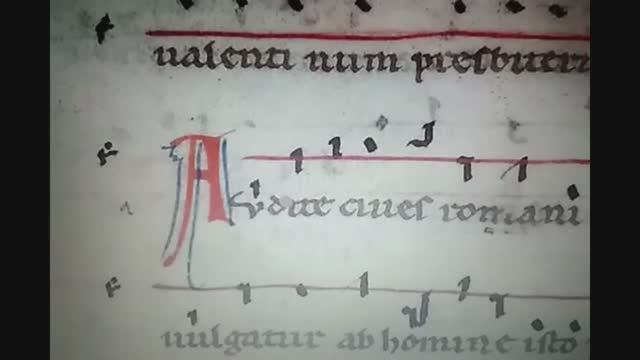 ualenti num presbiteri
Audite ciues romani
uulgatur ab homine isto